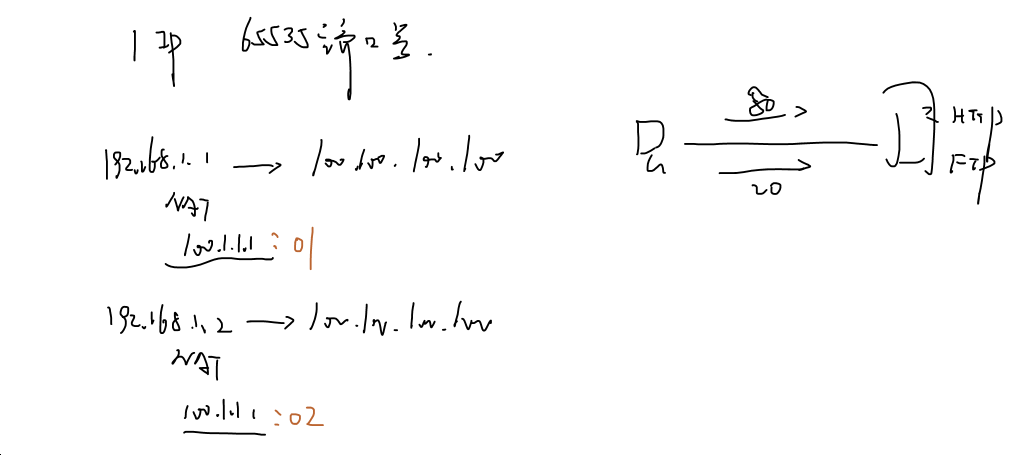 1 IP 65535端口号.
192.168.1.1 → 100.100.100.100
NAT
100.1.1.1:01
192.168.1.2 → 100.100.100.100
NAT
100.1.1.1:02
80
HTTP
FTP
20